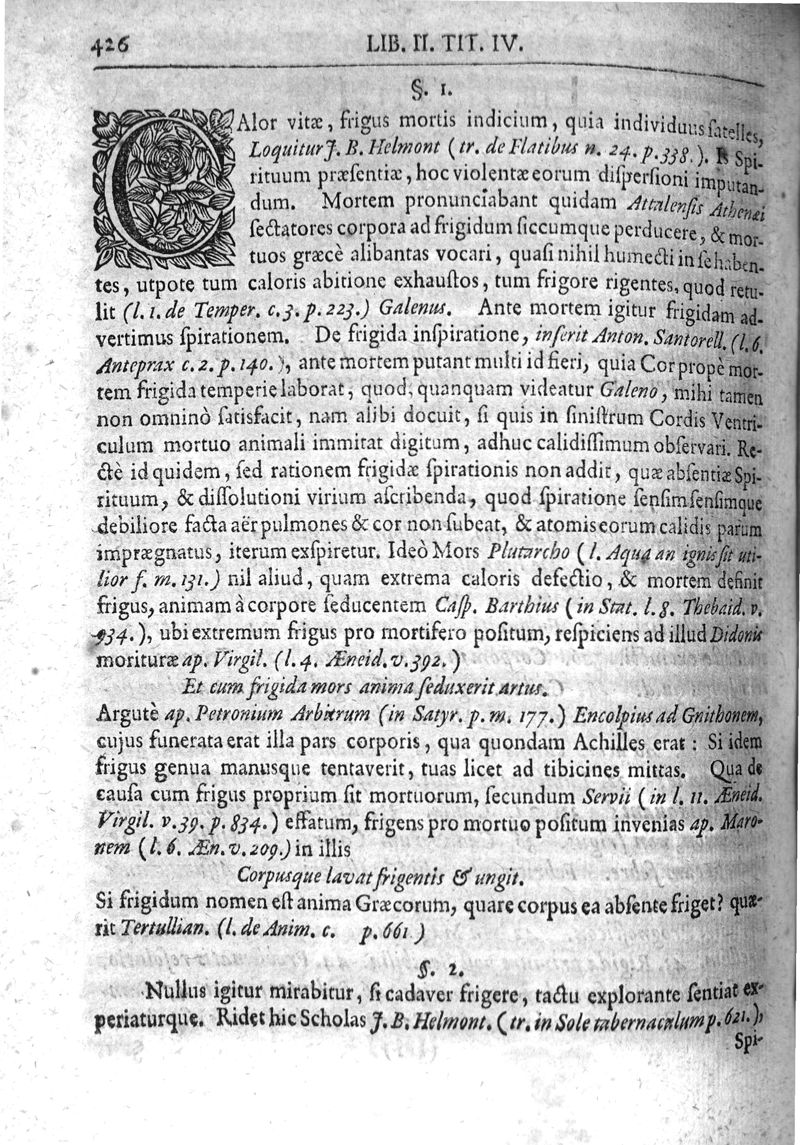 426 LIB. II. TIT. IV.
§. 1.
CAlor vitæ, frigus mortis indicium, quia individuus ſatelles,
Loquitur J. B. Helmont (tr. de Flatibus n. 24. p. 338.). Is Spi-
rituum præſentiæ, hoc violentæ eorum diſperſioni imputan-
dum. Mortem pronunciabant quidam Attalenſis Athenæi
ſectatores corpora ad frigidum ſiccumque perducere, & mor-
tuos græcè alibantas vocari, quaſi nihil humecti in ſe haben-
tes, utpote tum caloris abitione exhauſtos, tum frigore rigentes, quod retu-
lit (l. 1. de Temper. c. 3. p. 223.) Galenus. Ante mortem igitur frigidam ad-
vertimus ſpirationem. De frigida inſpiratione, inſerit Anton. Santorell. (l. 6.
Anteprax c. 2. p. 140.), ante mortem putant multi id fieri, quia Cor propè mor-
tem frigida temperie laborat, quod, quanquam videatur Galeno, mihi tamen
non omninò ſatisfacit, nam alibi docuit, ſi quis in ſiniſtrum Cordis Ventri-
culum mortuo animali immitat digitum, adhuc calidiſſimum obſervari. Re-
ctè id quidem, ſed rationem frigidæ ſpirationis non addit, quæ abſentiæ Spi-
rituum, & diſſolutioni virium aſcribenda, quod ſpiratione ſenſim ſenſimque
debiliore facta aër pulmones & cor non ſubeat, & atomis eorum calidis parum
imprægnatus, iterum exſpiretur. Ideò Mors Plutarcho (l. Aqua an ignis ſit uti-
lior f. m. 131.) nil aliud, quam extrema caloris defectio, & mortem definit
frigus, animam à corpore ſeducentem Caſp. Barthius (in Stat. l. 8. Thebaid. v.
934.), ubi extremum frigus pro mortifero poſitum, reſpiciens ad illud Didonis
morituræ ap. Virgil. (l. 4. Æneid. v. 392.)
Et cum frigida mors anima ſeduxerit artus.
Argutè ap. Petronium Arbitrum (in Satyr. p. m. 177.) Encolpius ad Gnithonem,
cujus funerata erat illa pars corporis, qua quondam Achilles erat: Si idem
frigus genua manusque tentaverit, tuas licet ad tibicines mittas. Qua de
cauſa cum frigus proprium ſit mortuorum, ſecundum Servii (in l. 11. Æneid.
Virgil. v. 39. p. 834.) effatum, frigens pro mortuo poſitum invenias ap. Maro-
nem (l. 6. Æn. v. 209.) in illis
Corpusque lavat frigentis & ungit.
Si frigidum nomen eſt anima Græcorum, quare corpus ea abſente friget? quæ-
rit Tertullian. (l. de Anim. c. p. 661)
§. 2.
Nullus igitur mirabitur, ſi cadaver frigere, tactu explorante ſentiat ex-
periaturque. Ridet hic Scholas J. B. Helmont. (tr. in Sole tabernaculum p. 621.),
Spi-